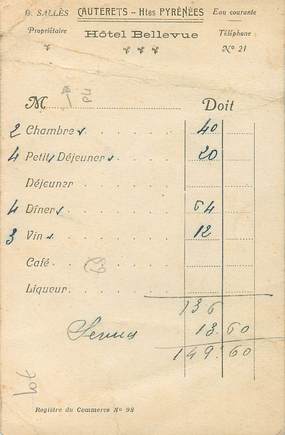 G. SALLÈS CAUTERETS – Htes PYRÉNÉES Eau courante
Propriétaire Hôtel Bellevue Téléphone
N° 21
M Doit
2 Chambres 40
4 Petits Déjeuners 20
Déjeuner
4 Dîners 64
3 Vins 12
Café
Liqueur
136
Service 13.60
149.60
Registre du Commerce N° 98